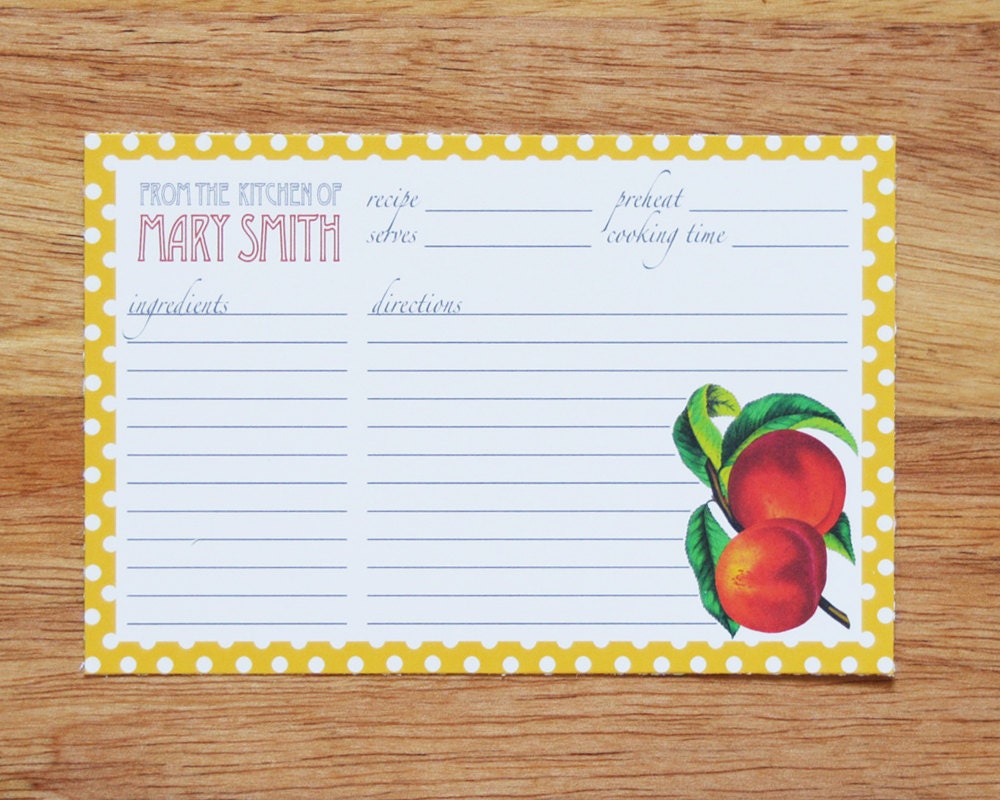 FROM THE KITCHEN OF
MARY SMITH
recipe
preheat
serves
cooking time
ingredients
directions